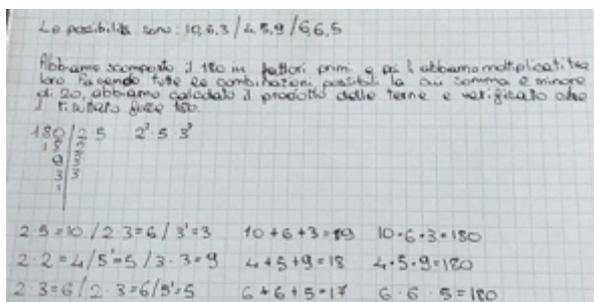 Le possibilità sono: 10,6,3 / 4,5,9 / 6,6,5
Abbiamo scomposto il 180 in fattori primi e poi li abbiamo moltiplicati tra
loro facendo tutte le combinazioni possibili la cui somma è minore
di 20, abbiamo calcolato il prodotto delle terne e verificato che
il risultato fosse 180.
180 | 2·5 2²·5·3²
18 | 2
9 | 3
3 | 3
1 |
2·5=10 / 2·3=6 / 3¹=3 10+6+3=19 10·6·3=180
2·2=4 / 5¹=5 / 3·3=9 4+5+9=18 4·5·9=180
2·3=6 / 2·3=6 / 5¹=5 6+6+5=17 6·6·5=180